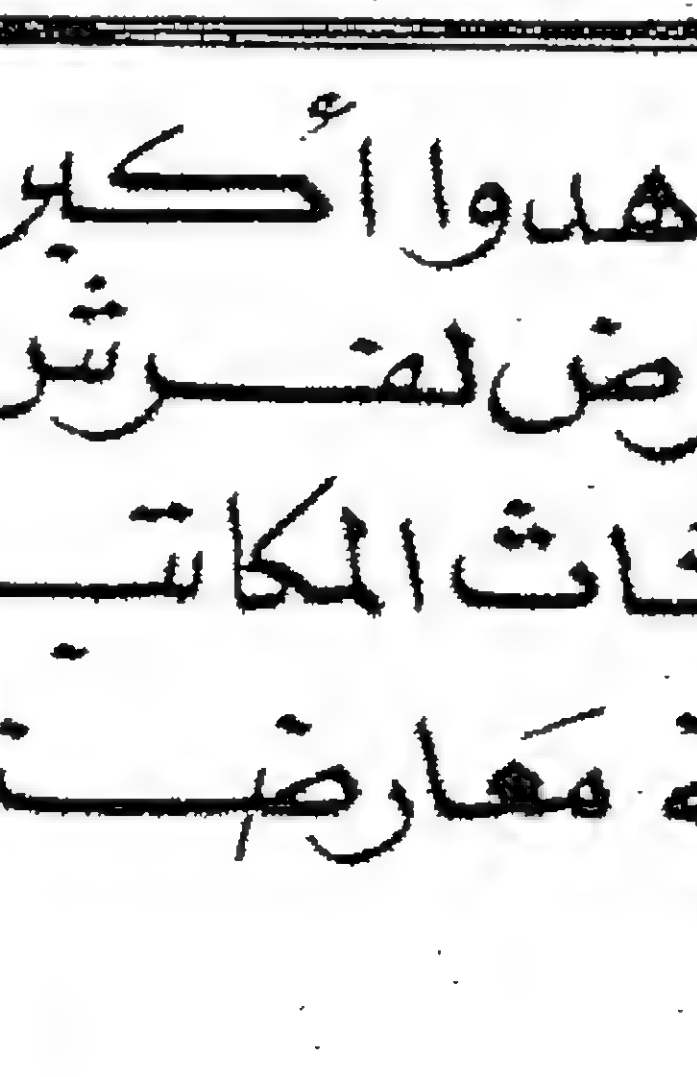 هدوا أكبر
رض لفرش
ثاث المكاتب
معارضنـ